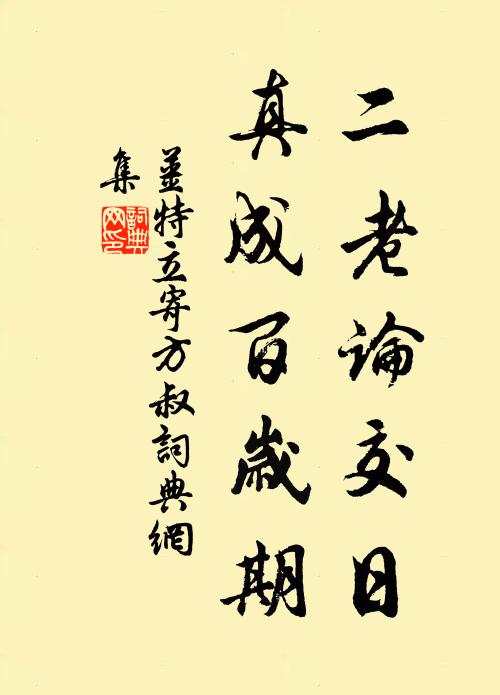 二老論交日
真成百歲期
姜特立寄方叔詞典網
集
詞典網印